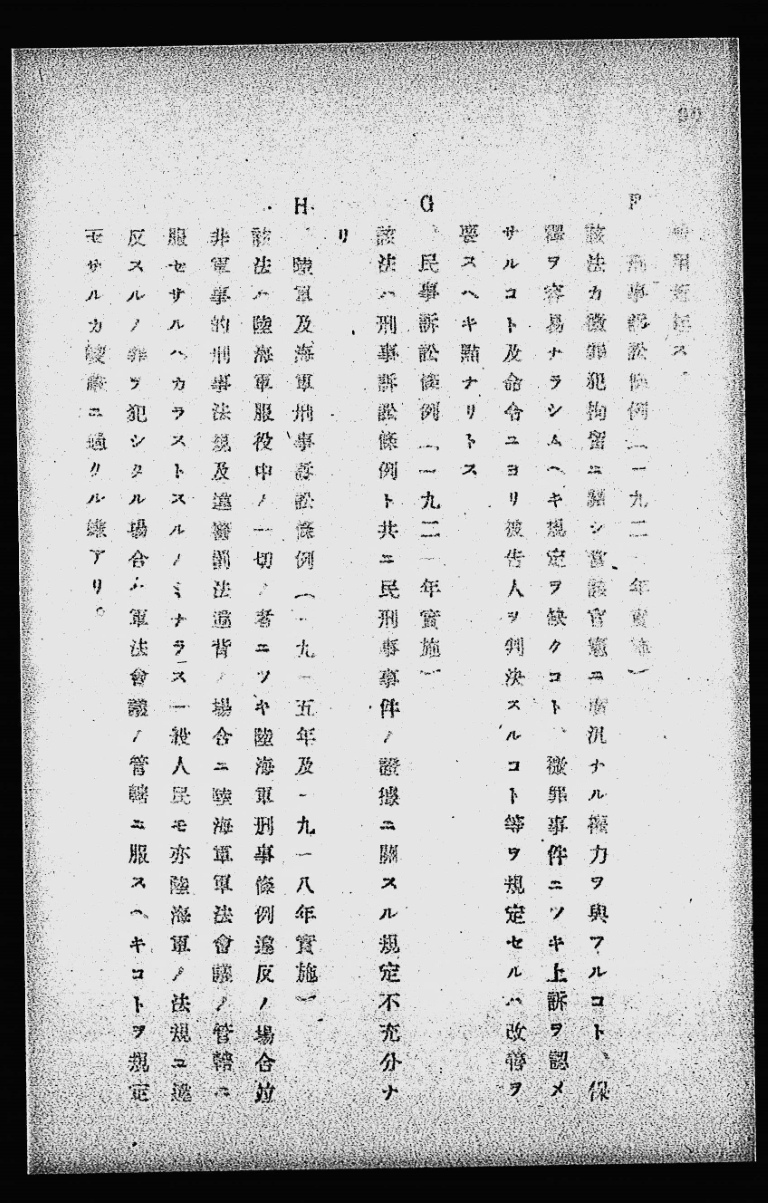 F 刑事訴訟條例(一九二一年實施)
該法カ微罪犯拘留ニ關シ當該官憲ニ廣汎ナル權力ヲ與フルコト、保
釋ヲ容易ナラシムヘキ規定ヲ缺クコト、微罪事件ニツキ上訴ヲ認メ
サルコト及命令ニヨリ被告人ヲ判決スルコト等ヲ規定セルハ改善ヲ
要スヘキ點ナリトス
G 、民事訴訟條例(一九二一年實施)
該法ハ刑事訴訟條例ト共ニ民刑事事件ノ證據ニ關スル規定不充分ナ
リ
H 、陸軍及海軍刑事訴訟條例(一九一五年及一九一八年實施)
該法ハ陸海軍服役中ノ一切ノ者ニツキ陸海軍刑事條例違反ノ場合竝
非軍事的刑事法規及違警罰法違背ノ場合ニ陸海軍軍法會議ノ管轄ニ
服セサルヘカラストスルノミナラス一般人民モ亦陸海軍ノ法規ニ違
反スルノ罪ヲ犯シタル場合ハ軍法會議ノ管轄ニ服スヘキコトヲ規定
セサルカ ニ過クル嫌アリ。